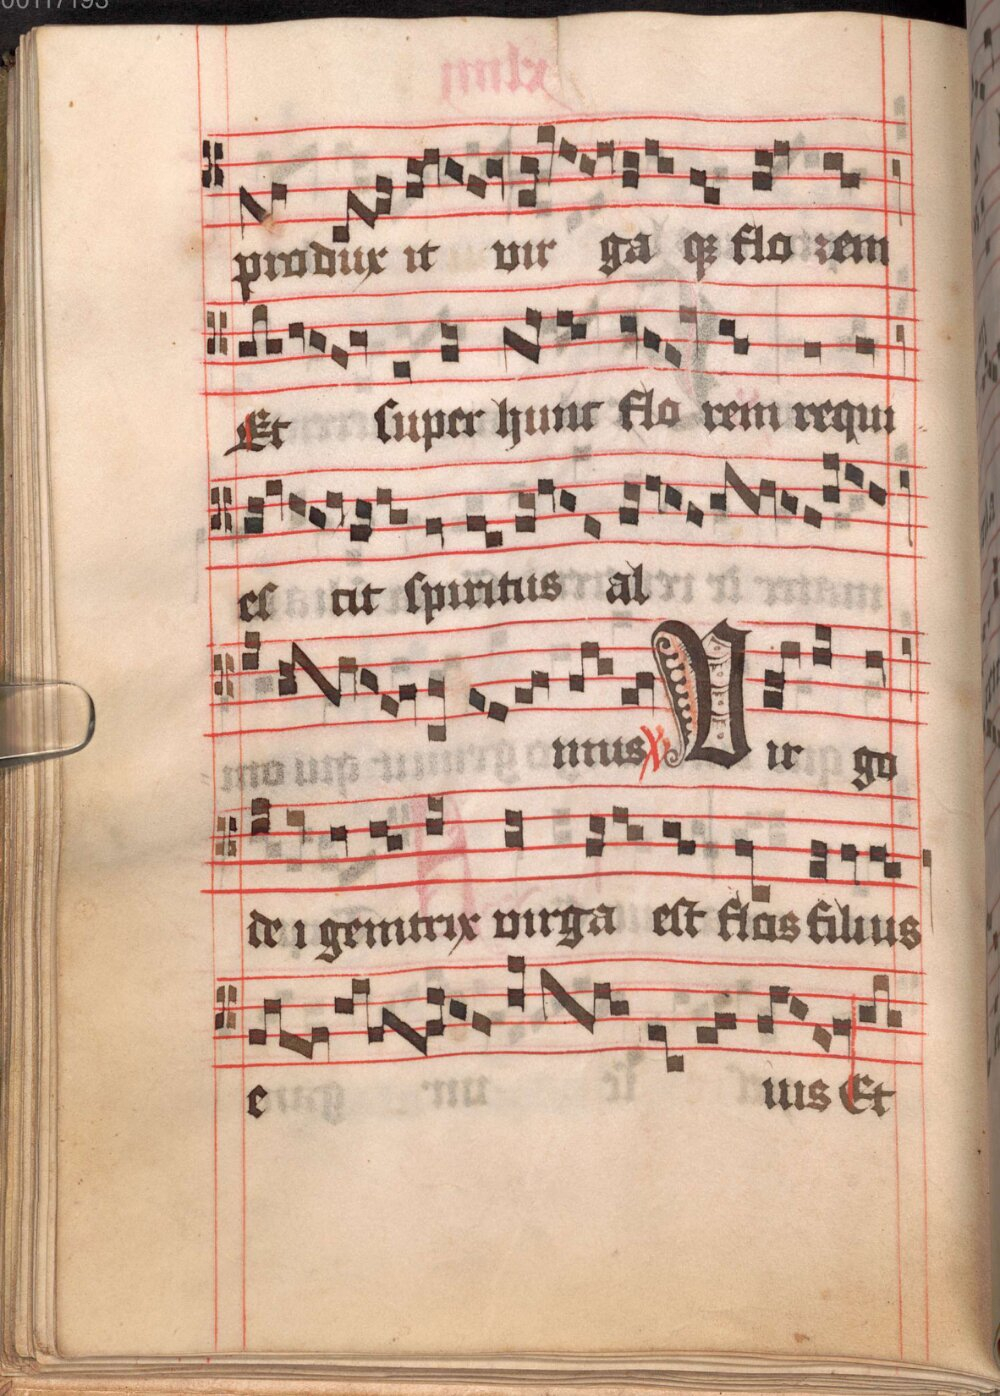 00117193
produx it vir ga qꝫ flo rem
Et super hunc flo rem requi
es cit spiritus al
mus Vir go
de i genitrix virga est flos filius
e ius Et